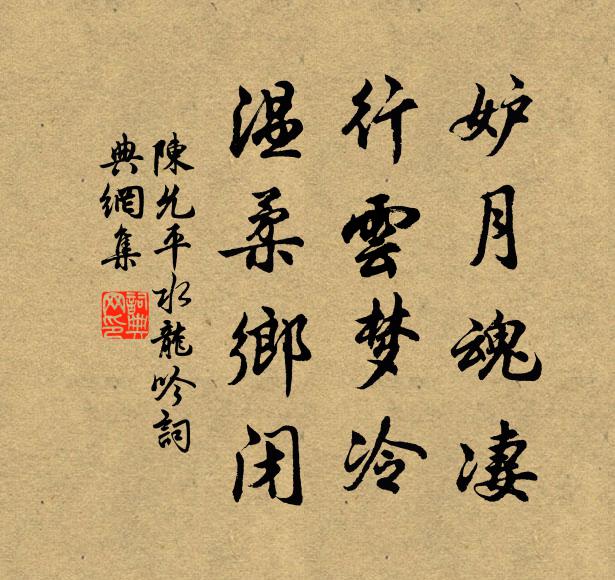 妒月魂凄
行雲梦冷
温柔鄉闭
陳允平水龍吟詞
典網集
詞典网印